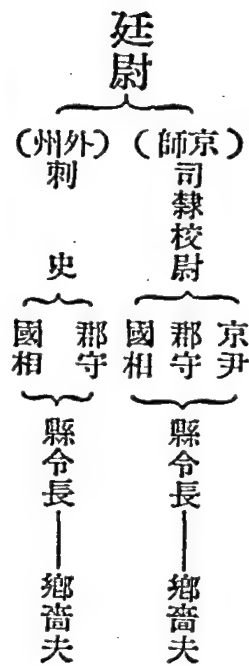 廷尉
（京師）司隸校尉
京尹
郡守
國相
縣令長——鄉嗇夫
（外州）刺史
郡守
國相
縣令長——鄉嗇夫